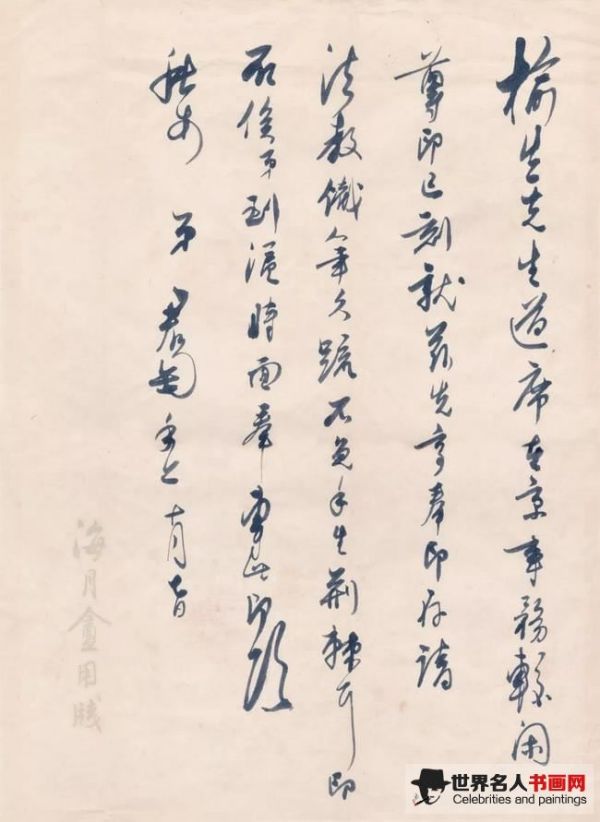 榆生先生道席在京事務較閑
尊印已刻就茲先寄奉印存請
法教鐵筆久疏不免手生荊棘耳印
石俟弟到滬時面奉專此即頌
秋安 弟 君匋 手上 十月七日
海月盦用牋
世界名人书画网
Celebrities and paintings